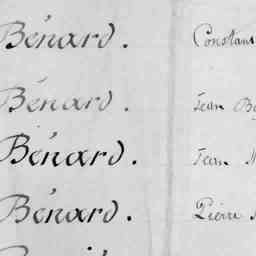 Bénard. Constant
Bénard. Jean
Bénard. Jean
Bénard. Pierre